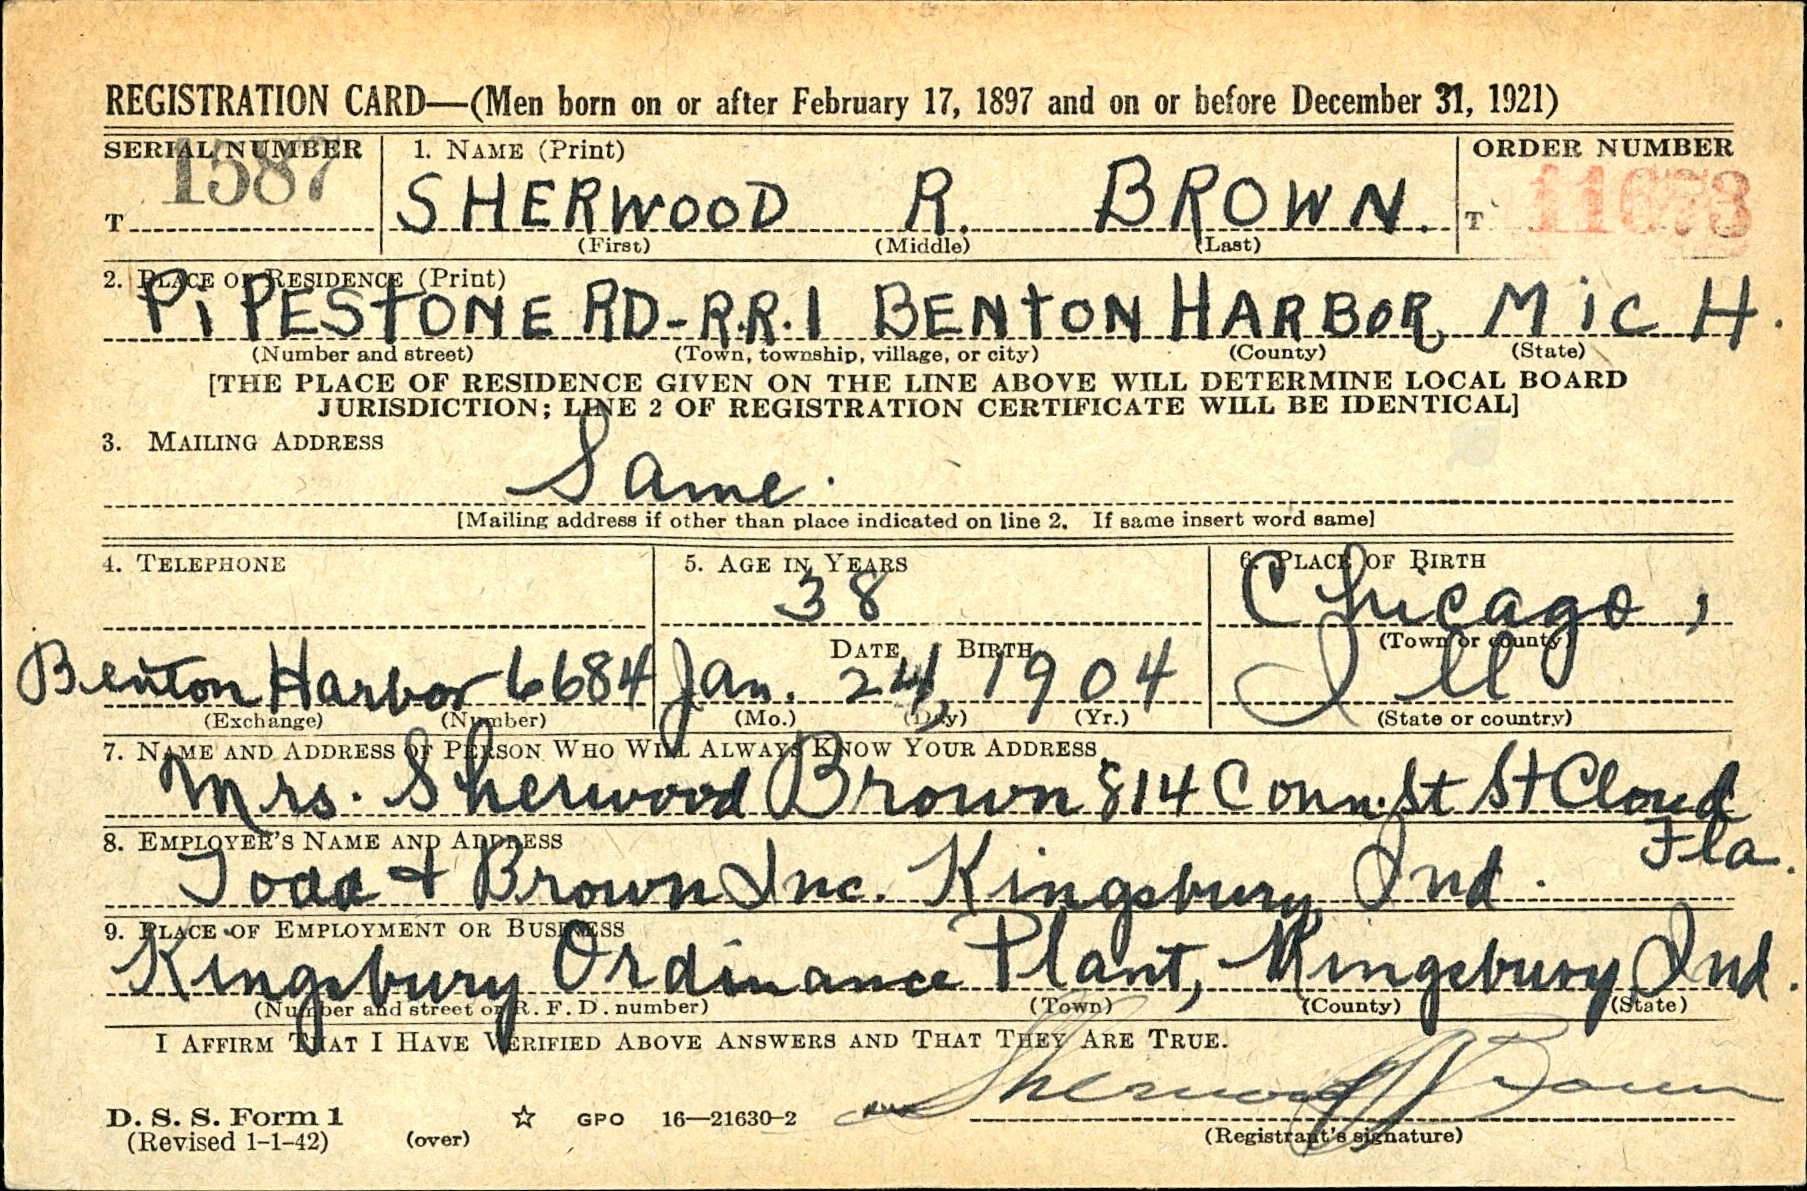 REGISTRATION CARD—(Men born on or after February 17, 1897 and on or before December 31, 1921)
SERIAL NUMBER 1. NAME (Print) ORDER NUMBER
T 1587 SHERWOOD R. BROWN. T 11673
(First) (Middle) (Last)
2. PLACE OF RESIDENCE (Print)
PiPESTONE RD-R.R.1 BENTON HARBOR, MiCH.
(Number and street) (Town, township, village, or city) (County) (State)
[THE PLACE OF RESIDENCE GIVEN ON THE LINE ABOVE WILL DETERMINE LOCAL BOARD
JURISDICTION; LINE 2 OF REGISTRATION CERTIFICATE WILL BE IDENTICAL]
3. MAILING ADDRESS
Same.
[Mailing address if other than place indicated on line 2. If same insert word same]
4. TELEPHONE 5. AGE IN YEARS 6. PLACE OF BIRTH
38 Chicago,
DATE BIRTH (Town or county)
Benton Harbor 6684 Jan. 24, 1904 Ill
(Exchange) (Number) (Mo.) (Day) (Yr.) (State or country)
7. NAME AND ADDRESS OF PERSON WHO WILL ALWAYS KNOW YOUR ADDRESS
Mrs. Sherwood Brown 814 Conn. St St Cloud
Fla.
8. EMPLOYER'S NAME AND ADDRESS
Todd + Brown Inc. Kingsbury Ind.
9. PLACE OF EMPLOYMENT OR BUSINESS
Kingsbury Ordinance Plant, Kingsbury Ind.
(Number and street or R. F. D. number) (Town) (County) (State)
I AFFIRM THAT I HAVE VERIFIED ABOVE ANSWERS AND THAT THEY ARE TRUE.
Sherwood R Brown
D. S. S. Form 1 ☆ GPO 16—21630-2
(Revised 1-1-42) (over) (Registrant's signature)